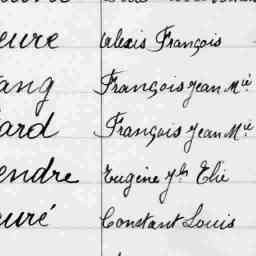 eure Alexis François
ang François Jean Mie
ard François Jean Mie
endre Eugène Elie
euré Constant Louis